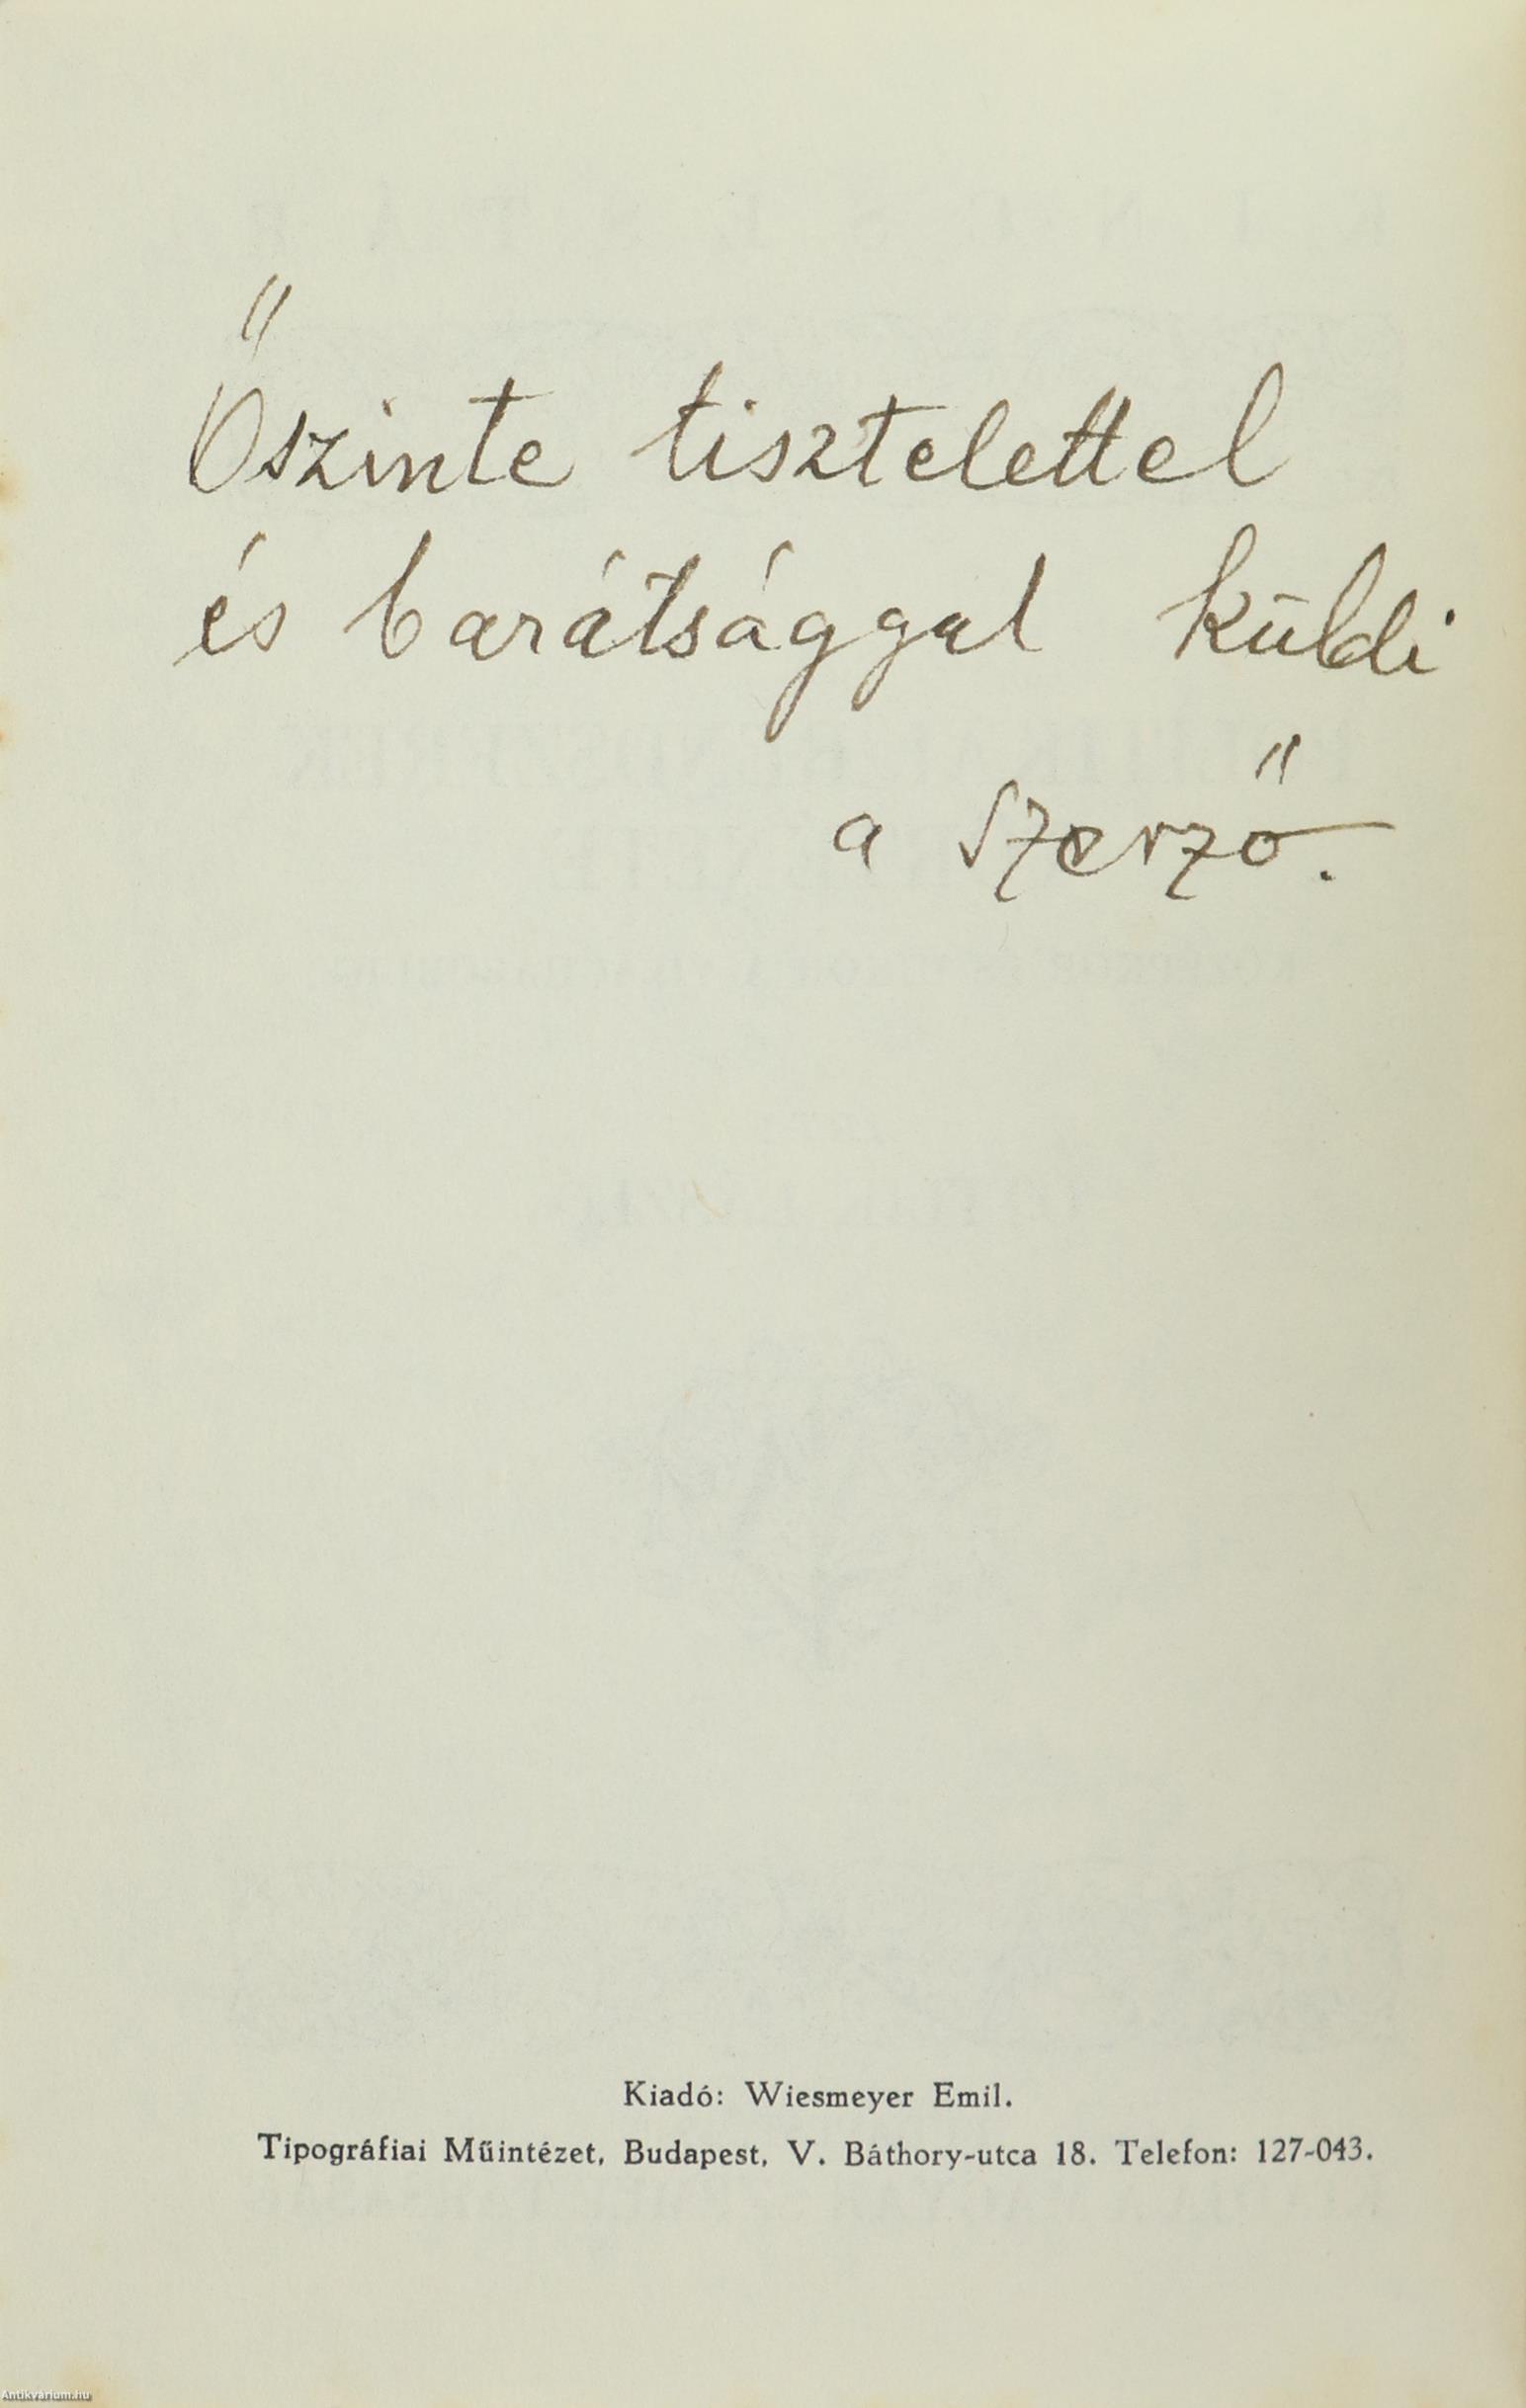 Őszinte tisztelettel
és barátsággal küldi
a szerző.
Kiadó: Wiesmeyer Emil.
Tipográfiai Műintézet, Budapest, V. Báthory-utca 18. Telefon: 127-043.
Antikvárium.hu